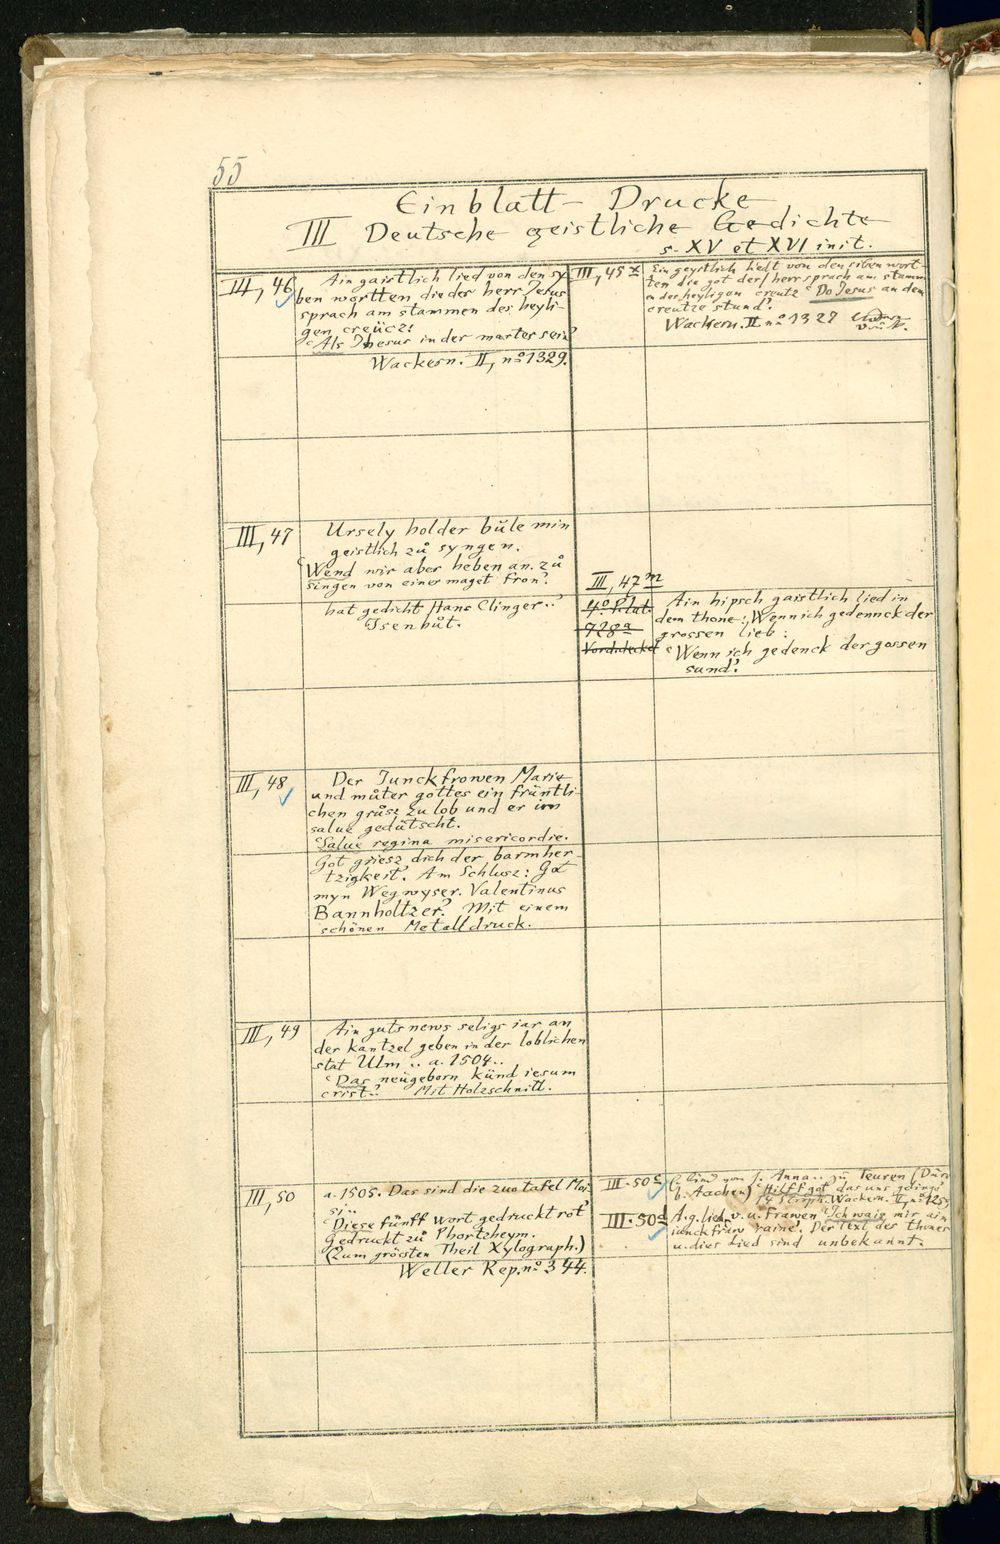 55
Einblatt-Drucke
III Deutsche geistliche Gedichte
s. XV et XVI init.
III, 46
Ain gaistlich lied von den sy
ben wortten die der herr Jesus
sprach am stammen des heyli-
gen creücz:
Als Jhesus in der martes sein?
Wackern. II, no 1329.
III, 47
Ursely holder bůle min
geistlich zů syngen.
Wend wir aber heben an. zů
singen von einer maget fron?
hat gedicht Hans Clinger..
Isenhůt.
III, 48
Der Junckfrowen Marie
und můter gottes ein früntli-
chen grůsz zu lob und er im
salue gedütscht.
Salue regina misericordie.
Got griesz dich der barmher-
tzigkeit? Am Schlusz: Got
myn Wegwyser. Valentinus
Bannholtzer? Mit einem
schönen Metalldruck.
III, 49
Ain guts news seligs iar an
der kantzel geben in der loblichen
stat Ulm .. a. 1504..
Das neügeborn künd iesum
crist? Mit Holzschnitt.
III, 50
a. 1505. Das sind die zwo tafel Moi
si..
Diese fünff wort gedruckt rot
Gedruckt zů Phortzheym.
(Zum grössten Theil Xylograph.)
Weller Rep. no 344.
III, 45
Ein geystlich liedt von den siben wort-
ten die got der herr sprach am stamm
en des heyligen creutz Do Jesus an dem
creutze stund?
Wackern. II no 1327
III, 47m
4o P.lat.
928a
Vorddeckel
Ain hipsch gaistlich lied in
dem thone: Wenn ich gedennck der
grossen lieb:
Wenn ich gedenck der gossen
sund?
III. 50c
S. Anna.. zu Teuren (Düren
b. Aachen) Hilff got das uns gelinge
14 Stroph. Wackern. II, no
III. 50d
A. g. lied v. u. Frawen Ich wais mir ain
iunckfraw raine? Der Text des thones
u. dies Lied sind unbekannt.